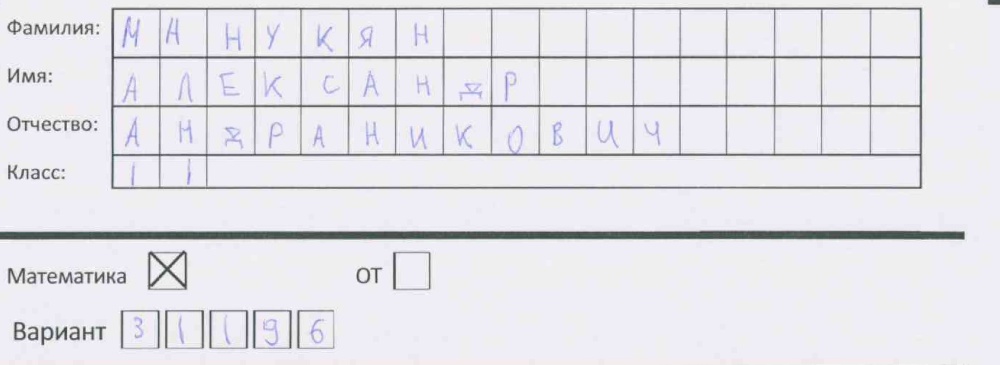 Фамилия: МАНУКЯН
Имя: АЛЕКСАНДР
Отчество: АНДРАНИКОВИЧ
Класс: 11
Математика ОТ
Вариант 31196